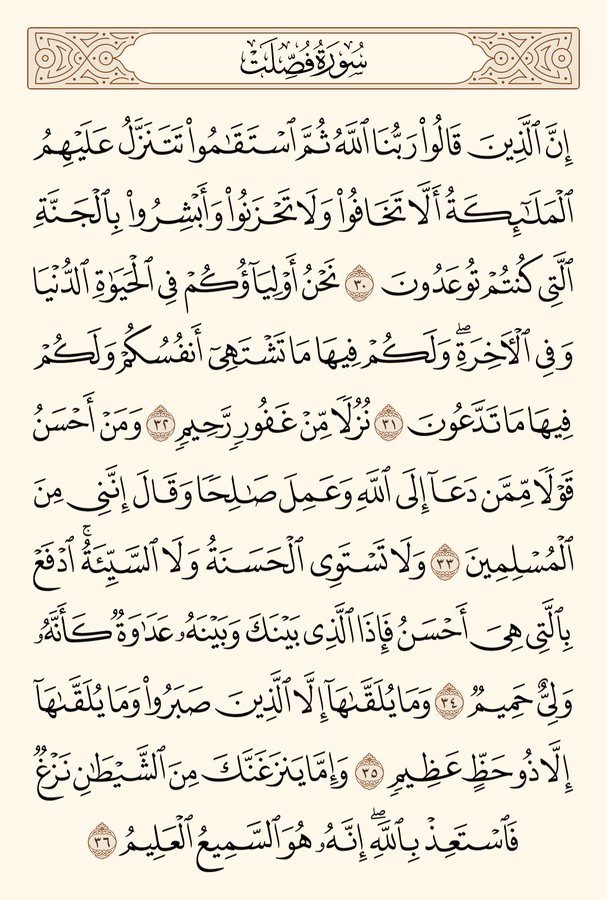 سُورَةُ فُصِّلَتْ
إِنَّ ٱلَّذِينَ قَالُوا۟ رَبُّنَا ٱللَّهُ ثُمَّ ٱسْتَقَـٰمُوا۟ تَتَنَزَّلُ عَلَيْهِمُ
ٱلْمَلَـٰٓئِكَةُ أَلَّا تَخَافُوا۟ وَلَا تَحْزَنُوا۟ وَأَبْشِرُوا۟ بِٱلْجَنَّةِ
ٱلَّتِى كُنتُمْ تُوعَدُونَ ٣٠ نَحْنُ أَوْلِيَآؤُكُمْ فِى ٱلْحَيَوٰةِ ٱلدُّنْيَا
وَفِى ٱلْـَٔاخِرَةِ ۖ وَلَكُمْ فِيهَا مَا تَشْتَهِىٓ أَنفُسُكُمْ وَلَكُمْ
فِيهَا مَا تَدَّعُونَ ٣١ نُزُلًا مِّنْ غَفُورٍ رَّحِيمٍ ٣٢ وَمَنْ أَحْسَنُ
قَوْلًا مِّمَّن دَعَآ إِلَى ٱللَّهِ وَعَمِلَ صَـٰلِحًا وَقَالَ إِنَّنِى مِنَ
ٱلْمُسْلِمِينَ ٣٣ وَلَا تَسْتَوِى ٱلْحَسَنَةُ وَلَا ٱلسَّيِّئَةُ ۚ ٱدْفَعْ
بِٱلَّتِى هِىَ أَحْسَنُ فَإِذَا ٱلَّذِى بَيْنَكَ وَبَيْنَهُۥ عَدَٰوَةٌ كَأَنَّهُۥ
وَلِىٌّ حَمِيمٌ ٣٤ وَمَا يُلَقَّىٰهَآ إِلَّا ٱلَّذِينَ صَبَرُوا۟ وَمَا يُلَقَّىٰهَآ
إِلَّا ذُو حَظٍّ عَظِيمٍ ٣٥ وَإِمَّا يَنزَغَنَّكَ مِنَ ٱلشَّيْطَـٰنِ نَزْغٌ
فَٱسْتَعِذْ بِٱللَّهِ ۖ إِنَّهُۥ هُوَ ٱلسَّمِيعُ ٱلْعَلِيمُ ٣٦